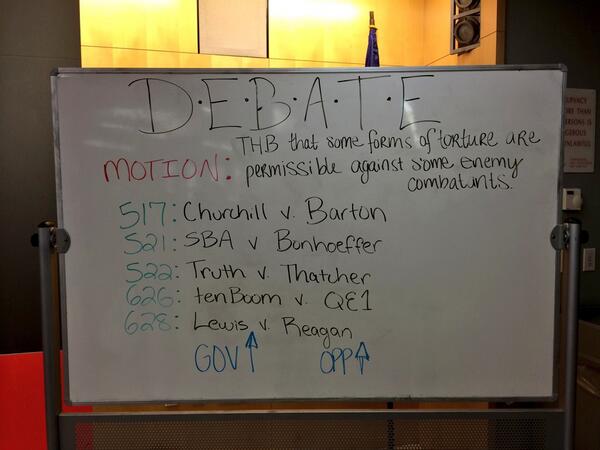 D·E·B·A·T·E
MOTION: THB that some forms of torture are
permissible against some enemy
combatants.
517: Churchill v. Barton
521: SBA v Bonhoeffer
522: Truth v. Thatcher
626: tenBoom v. QE1
628: Lewis v. Reagan
GOV↑ OPP↑